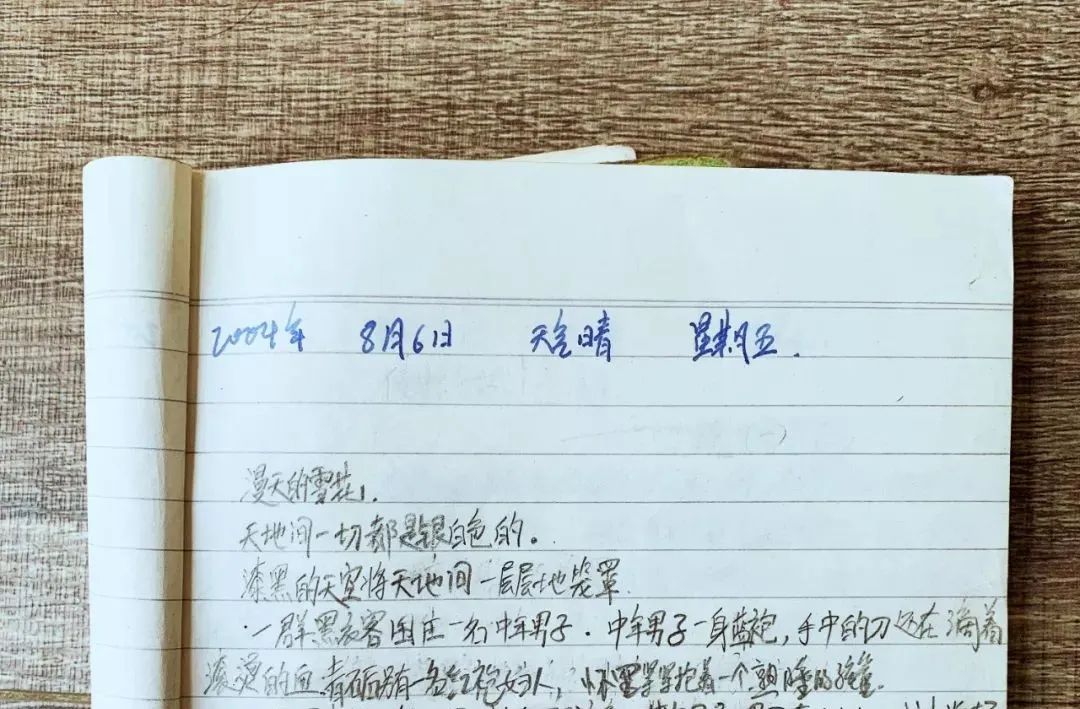 2004年 8月6日 天气晴 星期五.
(一)
漫天的雪花,.
天地间一切都是银白色的。
漆黑的天空将天地间一层层地笼罩.
一群黑衣客围住一名中年男子.中年男子一身蓝袍,手中的刀还在滴着
滚烫的血.青石后有一名红袍妇人,怀里紧紧抱着一个熟睡的孩童.